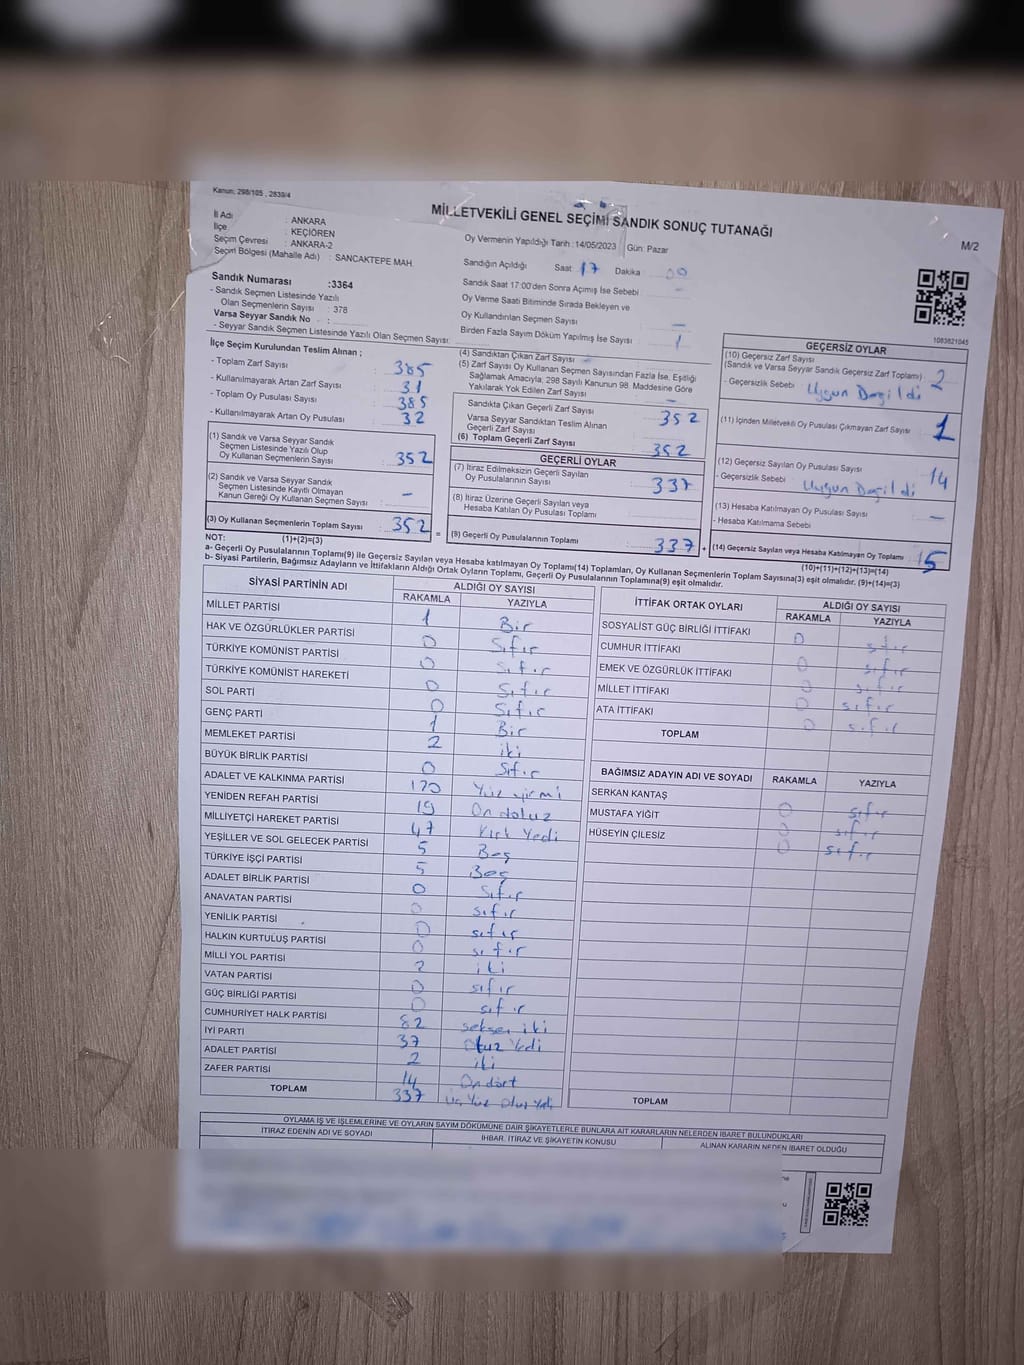 Kanun: 298/105 , 2839/4
MİLLETVEKİLİ GENEL SEÇİMİ SANDIK SONUÇ TUTANAĞI
M/2
İl Adı : ANKARA
İlçe : KEÇİÖREN
Seçim Çevresi : ANKARA-2
Seçim Bölgesi (Mahalle Adı) : SANCAKTEPE MAH.
Oy Vermenin Yapıldığı Tarih : 14/05/2023 Gün: Pazar
Sandığın Açıldığı Saat 17 Dakika 00
Sandık Saat 17:00'den Sonra Açımış İse Sebebi —
Oy Verme Saati Bitiminde Sırada Bekleyen ve
Oy Kullandırılan Seçmen Sayısı —
Birden Fazla Sayım Döküm Yapılmış İse Sayısı 1
Sandık Numarası :3364
- Sandık Seçmen Listesinde Yazılı
Olan Seçmenlerin Sayısı : 378
Varsa Seyyar Sandık No :
- Seyyar Sandık Seçmen Listesinde Yazılı Olan Seçmen Sayısı:
1083821045
İlçe Seçim Kurulundan Teslim Alınan ;
- Toplam Zarf Sayısı 385
- Kullanılmayarak Artan Zarf Sayısı 31
- Toplam Oy Pusulası Sayısı 385
- Kullanılmayarak Artan Oy Pusulası 32
(1) Sandık ve Varsa Seyyar Sandık
Seçmen Listesinde Yazılı Olup
Oy Kullanan Seçmenlerin Sayısı 352
(2) Sandık ve Varsa Seyyar Sandık
Seçmen Listesinde Kayıtlı Olmayan
Kanun Gereği Oy Kullanan Seçmen Sayısı —
(3) Oy Kullanan Seçmenlerin Toplam Sayısı 352
(4) Sandıktan Çıkan Zarf Sayısı
(5) Zarf Sayısı Oy Kullanan Seçmen Sayısından Fazla İse, Eşitliği
Sağlamak Amacıyla, 298 Sayılı Kanunun 98. Maddesine Göre
Yakılarak Yok Edilen Zarf Sayısı —
Sandıkta Çıkan Geçerli Zarf Sayısı 352
Varsa Seyyar Sandıktan Teslim Alınan
Geçerli Zarf Sayısı
(6) Toplam Geçerli Zarf Sayısı 352
GEÇERLİ OYLAR
(7) İtiraz Edilmeksizin Geçerli Sayılan
Oy Pusulalarının Sayısı 337
(8) İtiraz Üzerine Geçerli Sayılan veya
Hesaba Katılan Oy Pusulası Toplamı
= (9) Geçerli Oy Pusulalarının Toplamı 337 +
GEÇERSİZ OYLAR
(10) Geçersiz Zarf Sayısı
(Sandık ve Varsa Seyyar Sandık Geçersiz Zarf Toplamı) 2
- Geçersizlik Sebebi Uygun Degildi
(11) İçinden Milletvekili Oy Pusulası Çıkmayan Zarf Sayısı 1
(12) Geçersiz Sayılan Oy Pusulası Sayısı 14
- Geçersizlik Sebebi Uygun Degildi
(13) Hesaba Katılmayan Oy Pusulası Sayısı —
- Hesaba Katılmama Sebebi
(14) Geçersiz Sayılan veya Hesaba Katılmayan Oy Toplamı 15
NOT: (1)+(2)=(3)
(10)+(11)+(12)+(13)=(14)
a- Geçerli Oy Pusulalarının Toplamı(9) ile Geçersiz Sayılan veya Hesaba katılmayan Oy Toplamı(14) Toplamları, Oy Kullanan Seçmenlerin Toplam Sayısına(3) eşit olmalıdır. (9)+(14)=(3)
b- Siyasi Partilerin, Bağımsız Adayların ve İttifakların Aldığı Oyların Toplamı, Geçerli Oy Pusulalarının Toplamına(9) eşit olmalıdır.
SİYASİ PARTİNİN ADI ALDIĞI OY SAYISI
RAKAMLA YAZIYLA
MİLLET PARTİSİ 1 Bir
HAK VE ÖZGÜRLÜKLER PARTİSİ 0 Sıfır
TÜRKİYE KOMÜNİST PARTİSİ 0 Sıfır
TÜRKİYE KOMÜNİST HAREKETİ 0 Sıfır
SOL PARTİ 0 Sıfır
GENÇ PARTİ 1 Bir
MEMLEKET PARTİSİ 2 iki
BÜYÜK BİRLİK PARTİSİ 0 Sıfır
ADALET VE KALKINMA PARTİSİ 120 Yüz yirmi
YENİDEN REFAH PARTİSİ 19 On dokuz
MİLLİYETÇİ HAREKET PARTİSİ 47 Kırk Yedi
YEŞİLLER VE SOL GELECEK PARTİSİ 5 Beş
TÜRKİYE İŞÇİ PARTİSİ 5 Beş
ADALET BİRLİK PARTİSİ 0 Sıfır
ANAVATAN PARTİSİ 0 sıfır
YENİLİK PARTİSİ 0 sıfır
HALKIN KURTULUŞ PARTİSİ 0 sıfır
MİLLİ YOL PARTİSİ 2 iki
VATAN PARTİSİ 0 sıfır
GÜÇ BİRLİĞİ PARTİSİ 0 sıfır
CUMHURİYET HALK PARTİSİ 82 seksen iki
İYİ PARTİ 37 Otuz Yedi
ADALET PARTİSİ 2 iki
ZAFER PARTİSİ 14 Ondört
TOPLAM 337 Üç Yüz Otuz Yedi
İTTİFAK ORTAK OYLARI ALDIĞI OY SAYISI
RAKAMLA YAZIYLA
SOSYALİST GÜÇ BİRLİĞİ İTTİFAKI 0 sıfır
CUMHUR İTTİFAKI 0 sıfır
EMEK VE ÖZGÜRLÜK İTTİFAKI 0 sıfır
MİLLET İTTİFAKI 0 sıfır
ATA İTTİFAKI 0 sıfır
TOPLAM
BAĞIMSIZ ADAYIN ADI VE SOYADI RAKAMLA YAZIYLA
SERKAN KANTAŞ 0 sıfır
MUSTAFA YİĞİT 0 sıfır
HÜSEYİN ÇİLESİZ 0 sıfır
TOPLAM
OYLAMA İŞ VE İŞLEMLERİNE VE OYLARIN SAYIM DÖKÜMÜNE DAİR ŞİKAYETLERLE BUNLARA AİT KARARLARIN NELERDEN İBARET BULUNDUKLARI
İTİRAZ EDENİN ADI VE SOYADI İHBAR, İTİRAZ VE ŞİKAYETİN KONUSU ALINAN KARARIN NEDEN İBARET OLDUĞU